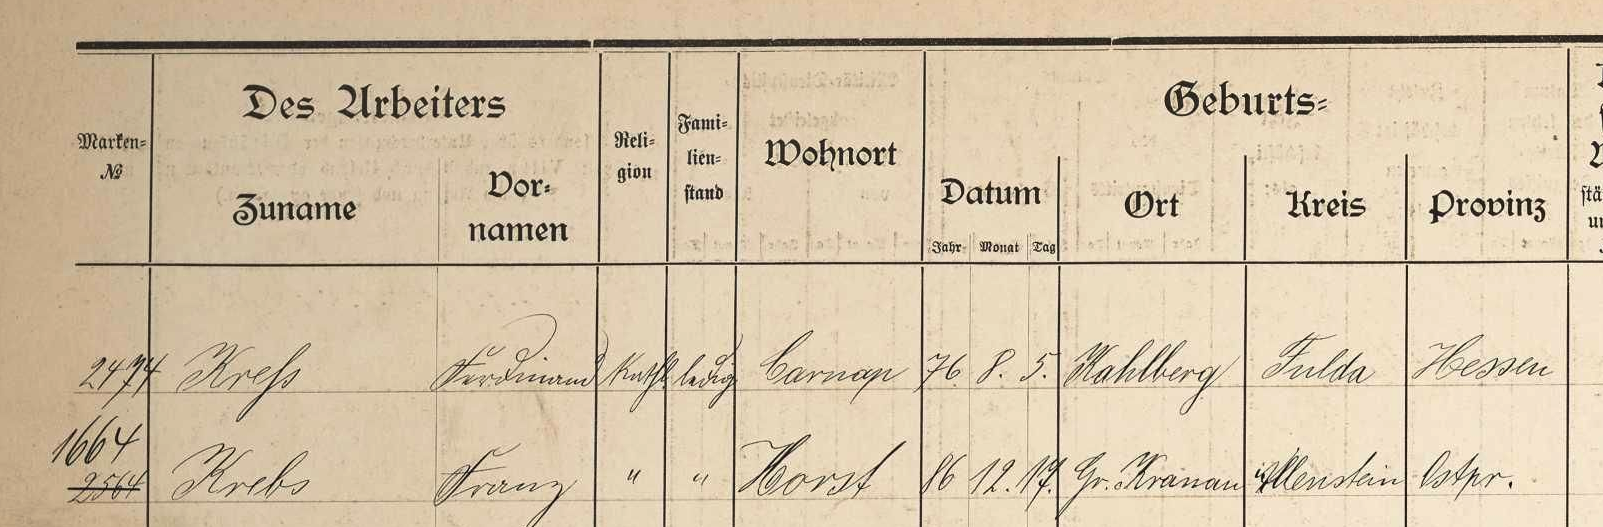 Des Arbeiters
Geburts-
Marken-
№
Reli-
gion
Fami-
lien-
stand
Wohnort
Zuname
Vor-
namen
Datum
Ort
Kreis
Provinz
Jahr Monat Tag
2474 Kreß Ferdinand Kath. ledig Carnap 76. 8. 5. Kahlberg Fulda Hessen
1664
2564 Krebs Franz " " Horst 86 12. 17. Gr. Kranau Allenstein Ostpr.